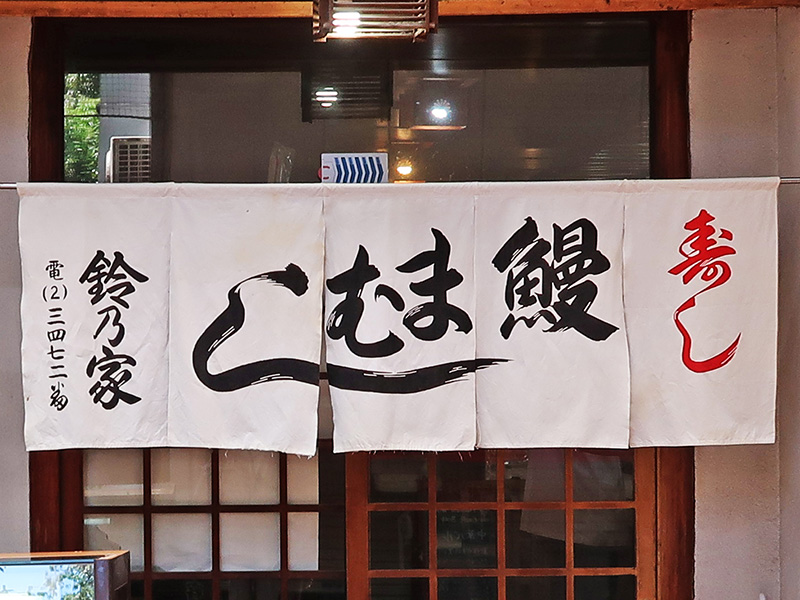 寿し
鰻
まむし
鈴乃家
電(2)三四七二番